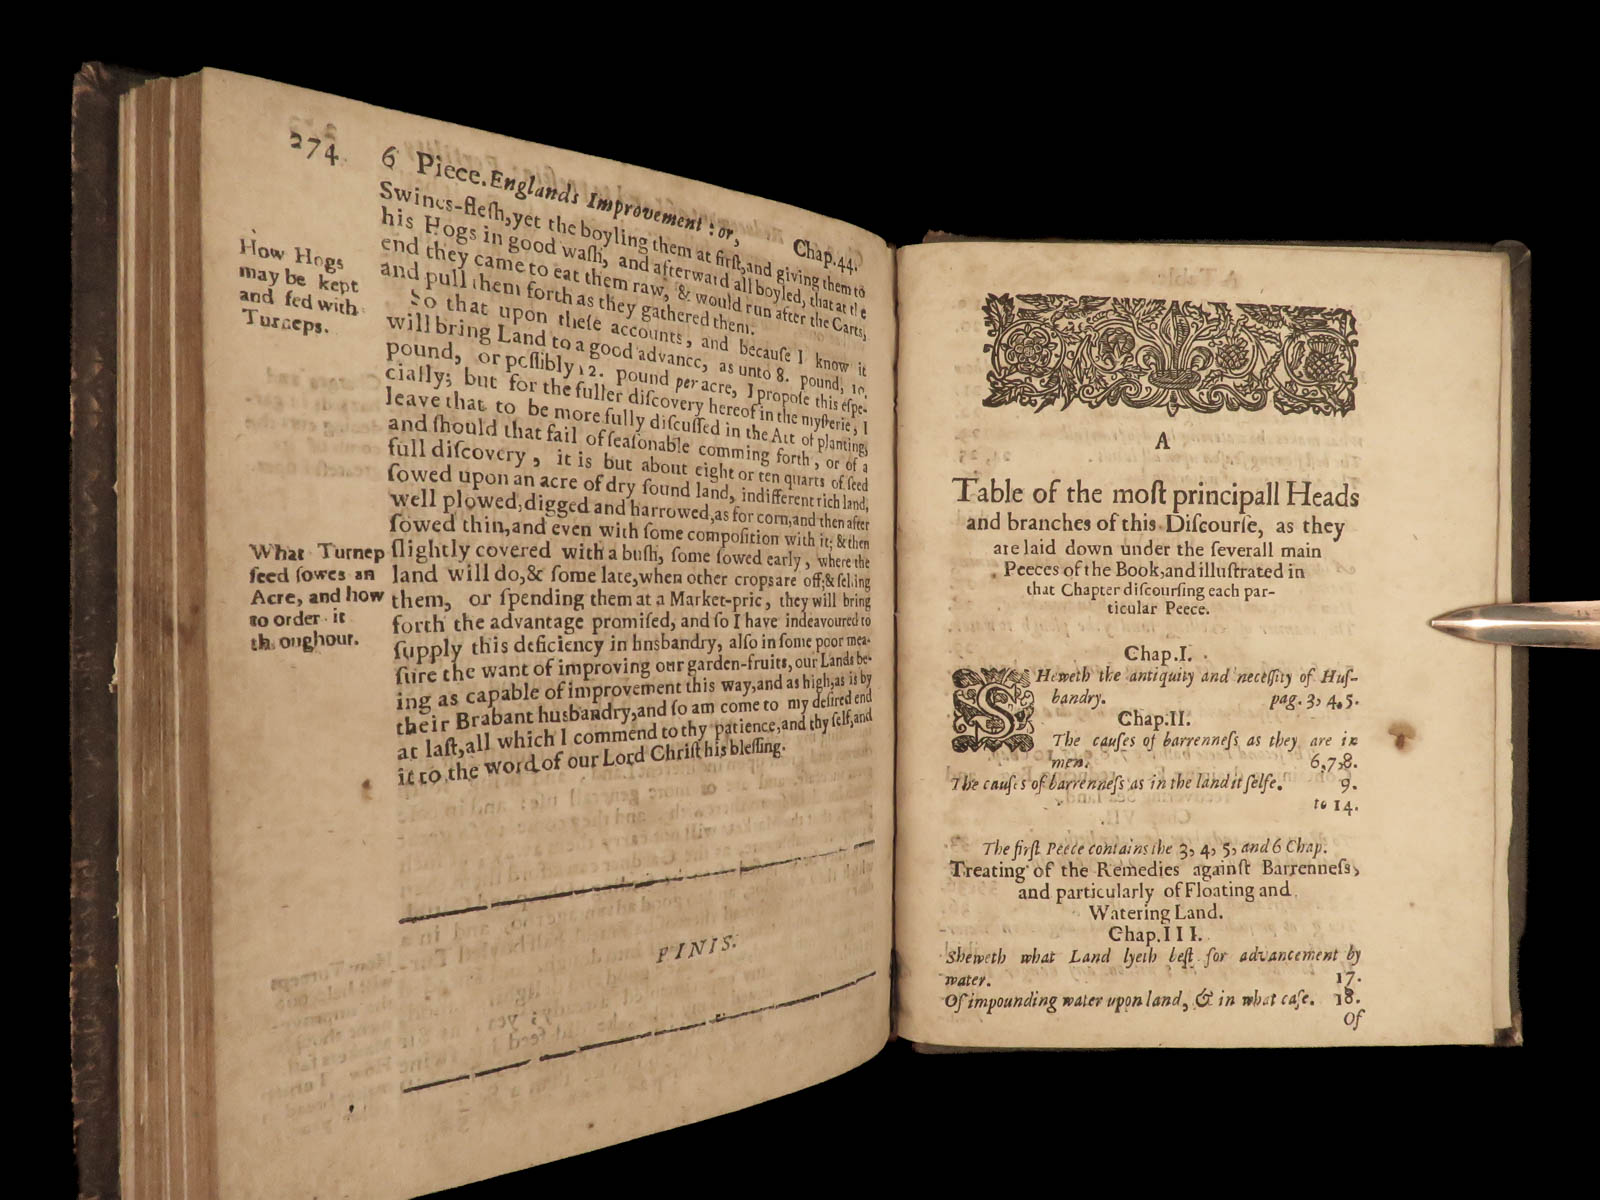 274 6 Piece. Englands Improvement : or, Chap.44.
How Hogs
may be kept
and fed with
Turneps.
Swines-fleſh, yet the boyling them at firſt, and giving them to
his Hogs in good waſh, and afterward all boyled, that at the
end they came to eat them raw, & would run after the Carts,
and pull them forth as they gathered them.
So that upon theſe accounts, and becauſe I know it
will bring Land to a good advance, as unto 8. pound, 10.
pound, or poſſibly 12. pound per acre, I propoſe this eſpe-
cially; but for the fuller diſcovery hereof in the myſterie, I
leave that to be more fully diſcuſſed in the Art of planting;
and ſhould that fail of ſeaſonable comming forth, or of a
full diſcovery, it is but about eight or ten quarts of ſeed
ſowed upon an acre of dry ſound land, indifferent rich land,
well plowed, digged and harrowed, as for corn, and then after
ſowed thin, and even with ſome compoſition with it; & then
What Turnep
ſeed ſowes an
Acre, and how
to order it
th oughour.
ſlightly covered with a buſh, ſome ſowed early, where the
land will do, & ſome late, when other crops are off; & ſelling
them, or ſpending them at a Market-pric, they will bring
forth the advantage promiſed, and ſo I have indeavoured to
ſupply this deficiency in hnsbandry, alſo in ſome poor mea-
ſure the want of improving our garden-fruits, our Lands be-
ing as capable of improvement this way, and as high, as is by
their Brabant husbandry, and ſo am come to my deſired end
at laſt, all which I commend to thy patience, and thy ſelf, and
it to the word of our Lord Chriſt his bleſſing.
FINIS.
A
Table of the moſt principall Heads
and branches of this Diſcourſe, as they
are laid down under the ſeverall main
Peeces of the Book, and illuſtrated in
that Chapter diſcourſing each par-
ticular Peece.
Chap.I.
SHeweth the antiquity and neceſſity of Huſ-
bandry. pag. 3, 4, 5.
Chap.II.
The cauſes of barrenneſs as they are in
men. 6,7,8.
The cauſes of barrenneſs as in the land it ſelfe. 9.
to 14.
The firſt Peece contains the 3, 4, 5, and 6 Chap.
Treating of the Remedies againſt Barrenneſs,
and particularly of Floating and
Watering Land.
Chap.III.
Sheweth what Land lyeth beſt for advancement by
water. 17.
Of impounding water upon land, & in what caſe. 18.
Of